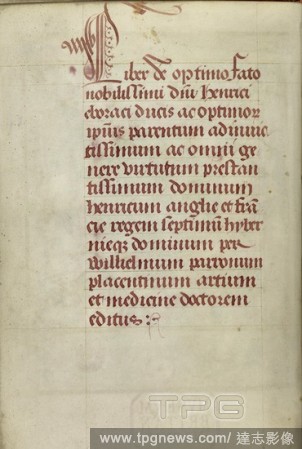 Liber de optimo fato
nobilissimi dn̄i henrici
eboraci ducis ac optimor
ipsius parentum ad inuic
tissimum ac omni ge
nere virtutum prestan
tissimum dominum
henricum anglie et frā
cie regem septimū hyber
nieqz dominum per
Wilhelmum parronum
placentinum artium
et medicine doctorem
editus :
TPG
www.tpgnews.com/ 達志影像